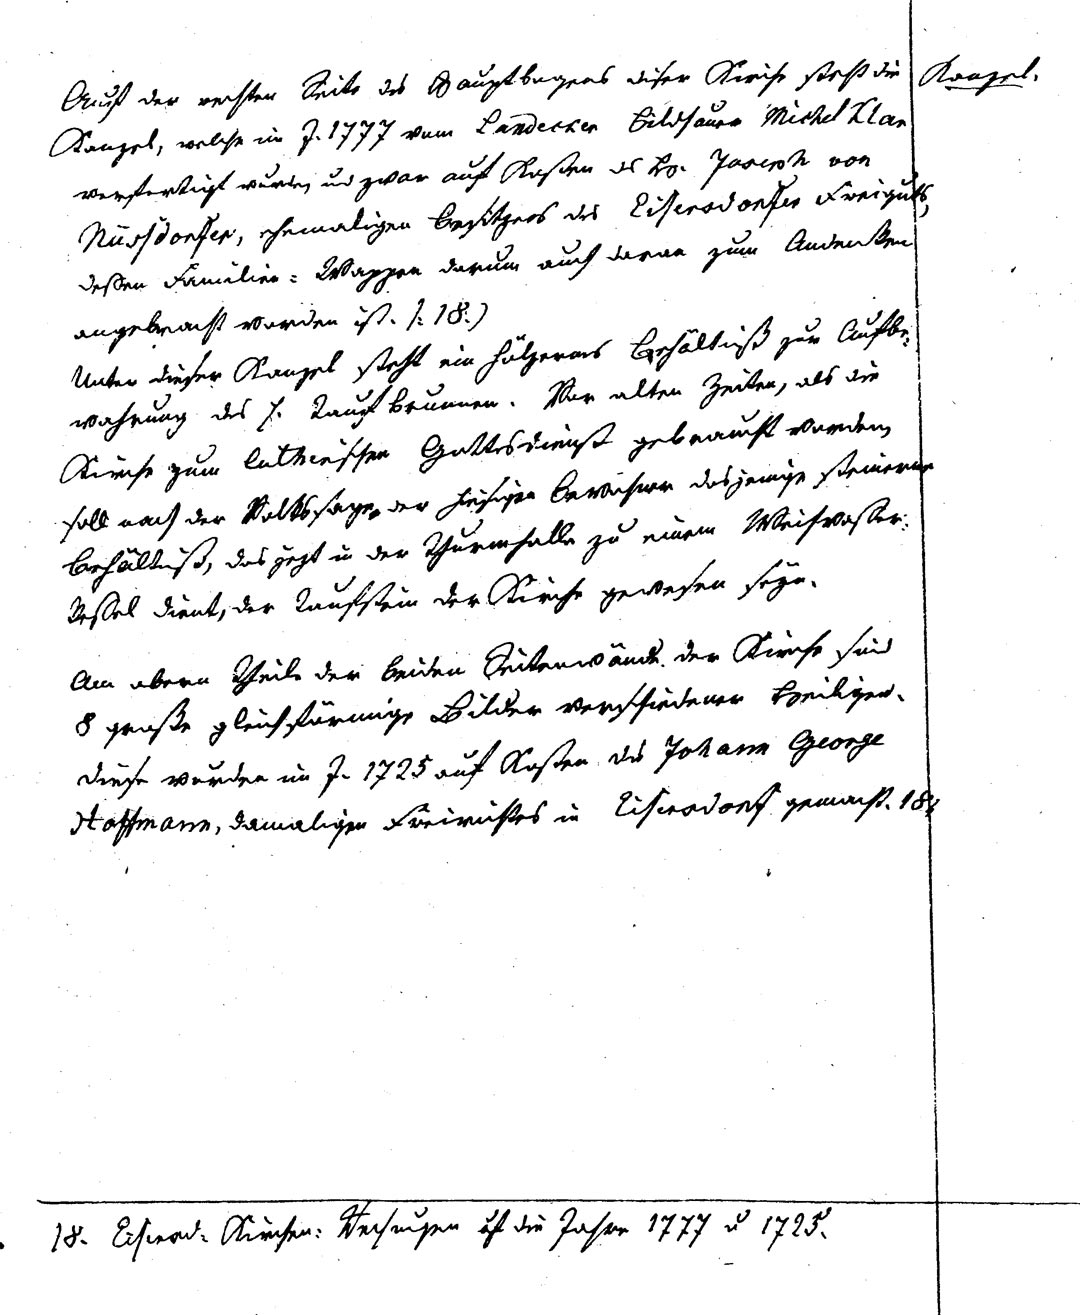 Auf der rechten Seite des Hauptbogens dieser Kirche steht die
Kanzel.
Kanzel, welche im J. 1777 vom Landecker Bildhauer Michel Klar
verfertigt wurde, und zwar auf Kosten des Hr. Joseph von
Nussdorfer, ehemaligen Besitzers des Eisersdorfer Freiguts,
deßen Familien-Wappen darum auch daran zum Andenken
angebracht worden ist. /: 18:)
Unter dieser Kanzel steht ein hölzernes Behältniß zur Aufbe-
wahrung des h. Taufbrunnen. Vor alten Zeiten, als die
Kirche zum lutherischen Gottesdienst gebraucht worden,
soll nach der Volkssage der hiesigen Bewohner dasjenige steinerne
Behältniß, das jezt in der Thurmhalle zu einem Weihwasser-
Keßel dient, der Taufstein der Kirche gewesen seyn.
Am obern Theile der beiden Seitenwände der Kirche sind
8 große gleichförmige Bilder verschiedener Heiligen.
Diese wurden im J. 1725 auf Kosten des Johann George
Hoffmann, damaligen Freirichters in Eisersdorf gemacht. 18:/
18. Eisersd: Kirchen: uf die Jahre 1777 u 1725.